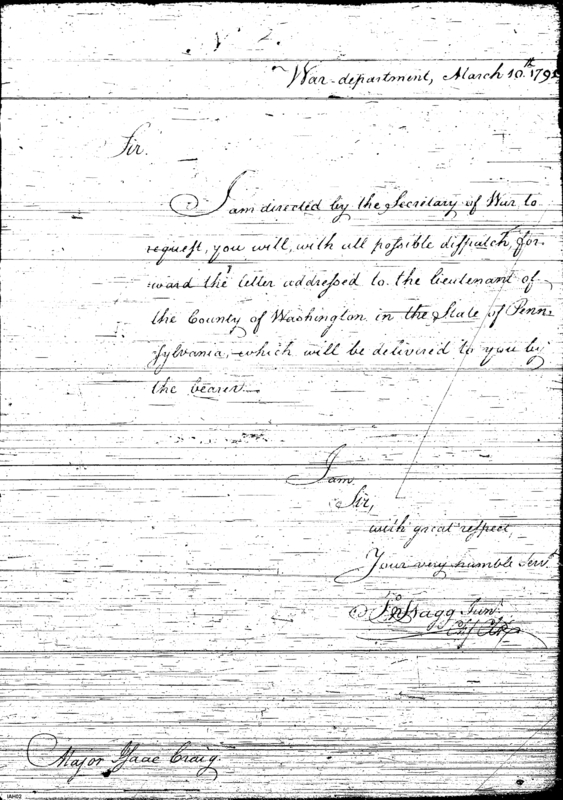 War-department, March 10th 179
Sir.
I am directed by the Secretary of War to
request, you will, with all possible dispatch, for-
ward the letter addressed to the lieutenant of
the County of Washington in the State of Penn-
sylvania, which will be delivered to you by
the bearer.
I am
Sir,
with great respect,
Your very humble Servt.
Jno Stagg Junr.
Chf Clk
Major Isaac Craig